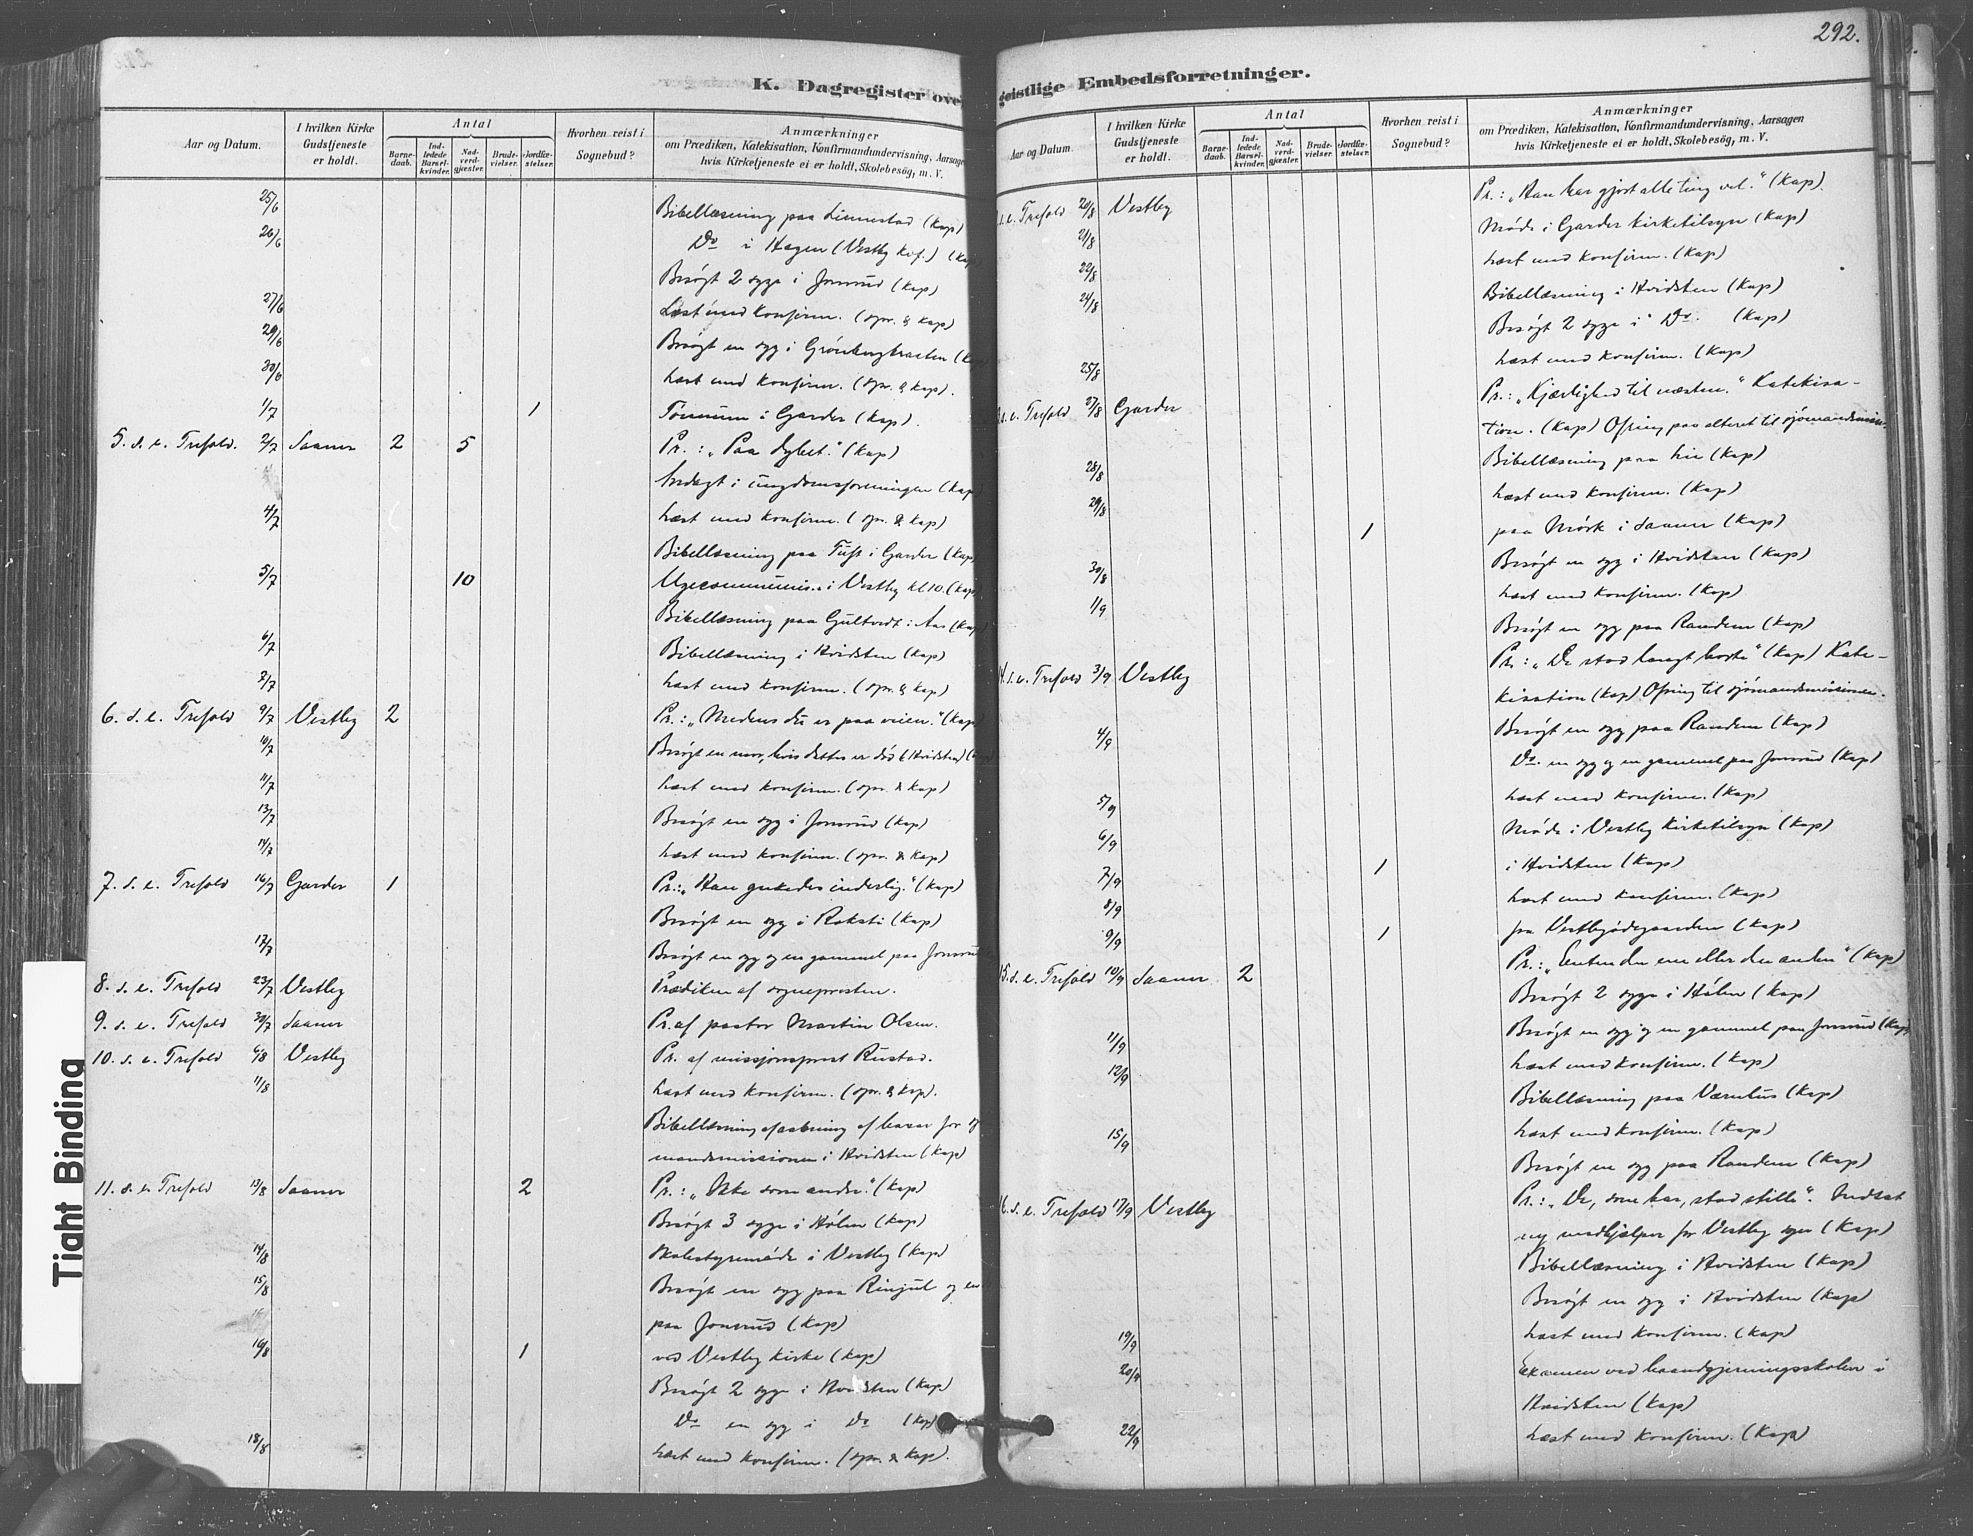 292.
K. Dagregister over geistlige Embedsforretninger.
Aar og Datum.
I hvilken Kirke Gudstjeneste er holdt.
Antal
Barnedaab.
Indledede Barselkvinder.
Nadverdgjæster.
Brudevielser.
Jordfæstelser.
Hvorhen reist i Sognebud?
Anmærkninger
om Prædiken, Katekisation, Konfirmandundervisning, Aarsagen
hvis Kirketjeneste ei er holdt, Skolebesøg, m. V.
25/6 Bibellæsning paa Linnestad (kap)
26/6 Do i Hagen (Vestby kof.) (kap)
Besøgt 2 syge i Jonsrud (kap)
27/6 Læst med konfirm. (spr. & kap)
29/6 Besøgt en syg i (kap)
30/6 Læst med konfirm. (spr. & kap).
1/7 1 i Garder (kap).
5. s. e. Trefold. 2/7 Saaner 2 5 Pr.: „Paa dybet." (kap)
Andagt i ungdomsforeningen (kap)
4/7 Læst med konfirm. (spr. & kap)
Bibellæsning paa Tuft i Garder (kap)
5/7 10 Ugecommunion i Vestby kl 10. (kap)
Bibellæsning paa i Aas (kap)
6/7 Bibellæsning i Hvidsten (kap)
7/7 Læst med konfirm. (spr. & kap)
6. s. e. Trefold 9/7 Vestby 2 Pr.: „Medens du er paa veien." (kap)
10/7 Besøgt en mor, hvis datter er død (Hvidsten)
11/7 Læst med konfirm. (spr. & kap)
13/7 Besøgt en syg i Jonsrud (kap)
14/7 Læst med konfirm. (spr. & kap)
7. s. e. Trefold 16/7 Garder 1 Pr.: „Han ynkedes inderlig." (kap)
Besøgt en syg i (kap)
17/7 Besøgt en syg og en gammel paa Jonsrud
8. s. e. Trefold 23/7 Vestby Prædiken af sognepresten.
9. s. e. Trefold 30/7 Saaner Pr. af pastor Martin Olsen.
10. s. e. Trefold 6/8 Vestby Pr. af missjonsprest Rustad.
11/8 Læst med konfirm. (spr. & kap).
Bibellæsning aabning af bazar for
mandsmissionen i Hvidsten (kap)
11. s. e. Trefold 13/8 Saaner 2 Pr.: „Ikke som andre." (kap)
Besøgt 3 syge i Hølen (kap)
14/8 Skolestyremøde i Vestby (kap)
15/8 Besøgt en syg paa Rinjul og en
paa Jonsrud (kap)
16/8 1 ved Vestby kirke (kap)
Besøgt 2 syge i Hvidsten (kap)
Do en syg i Do (kap)
18/8 Læst med konfirm. (spr. & kap).
s. e. Trefold 20/8 Vestby Pr.: „Han har gjort alle ting vel." (kap).
21/8 Møde i Garder kirketilsyn (kap)
22/8 Læst med konfirm. (kap)
24/8 Bibellæsning i Hvidsten (kap)
Besøgt 2 syge i Do. (kap)
25/8 Læst med konfirm. (kap)
s. e. Trefold 27/8 Garder Pr.: „Kjærlighed til næsten." Katekisa-
tion. (kap) Ofring paa alteret til sjømandsmis
28/8 Bibellæsning paa (kap)
29/8 Læst med konfirm. (kap)
1 paa Mørk i Saaner (kap)
30/8 Besøgt en syg i Hvidsten (kap)
1/9 Læst med konfirm. (kap)
Besøgt en syg paa Randem (kap)
14. s. e. Trefold 3/9 Vestby Pr.: „De stod langt borte" (kap) Kate-
kisation (kap) Ofring til sjømandsmissionen.
4/9 Besøgt en syg paa Randem (kap)
Do. en syg og en gammel paa Jonsrud (kap)
5/9 Læst med konfirm. (kap)
6/9 Møde i Vestby Kirketilsyn (kap)
7/9 1 i Hvidsten (kap)
8/9 Læst med konfirm. (kap)
9/9 1 fra Vestbyødegaarden (kap)
15. s. e. Trefold 10/9 Saaner 2 Pr.: „Enten den ene eller den anden" (kap)
Besøgt 2 syge i Hølen (kap)
11/9 Besøgt en syg og en gammel paa Jonsrud (kap)
12/9 Læst med konfirm. (kap)
Bibellæsning paa (kap)
15/9 Læst med konfirm. (kap)
Besøgt en syg paa Randem (kap)
16. s. e. Trefold 17/9 Vestby Pr.: „De, som bar, stod stille". Indsat
ny medhjælper for Vestby sogn (kap)
Bibellæsning i Hvidsten (kap)
Besøgt en syg i Hvidsten (kap)
19/9 Læst med konfirm. (kap)
20/9 Eksamen ved haandgjerningsskolen i
Hvidsten (kap)
22/9 Læst med konfirm. (kap)
Tight Binding